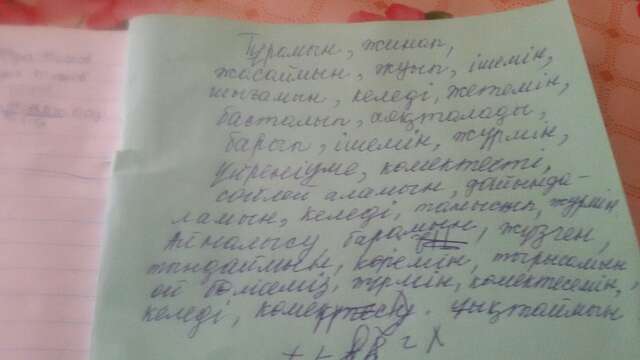 Тұрамын, жинап,
жасаймын, жуып, ішемін,
шығамын, келеді, жетемін,
басталып, аяқталады,
барып, ішемін, жүрмін,
үйренуіме, көмектесті,
сөйлей аламын, дайында-
ламын, келеді, танысып, жүрмін
Айналысу барамын, жүзген,
тындаймын, көремін, тырысамын
ой бөлеміз, жүрмін, көмектесемін,
келеді, ұықтаймын